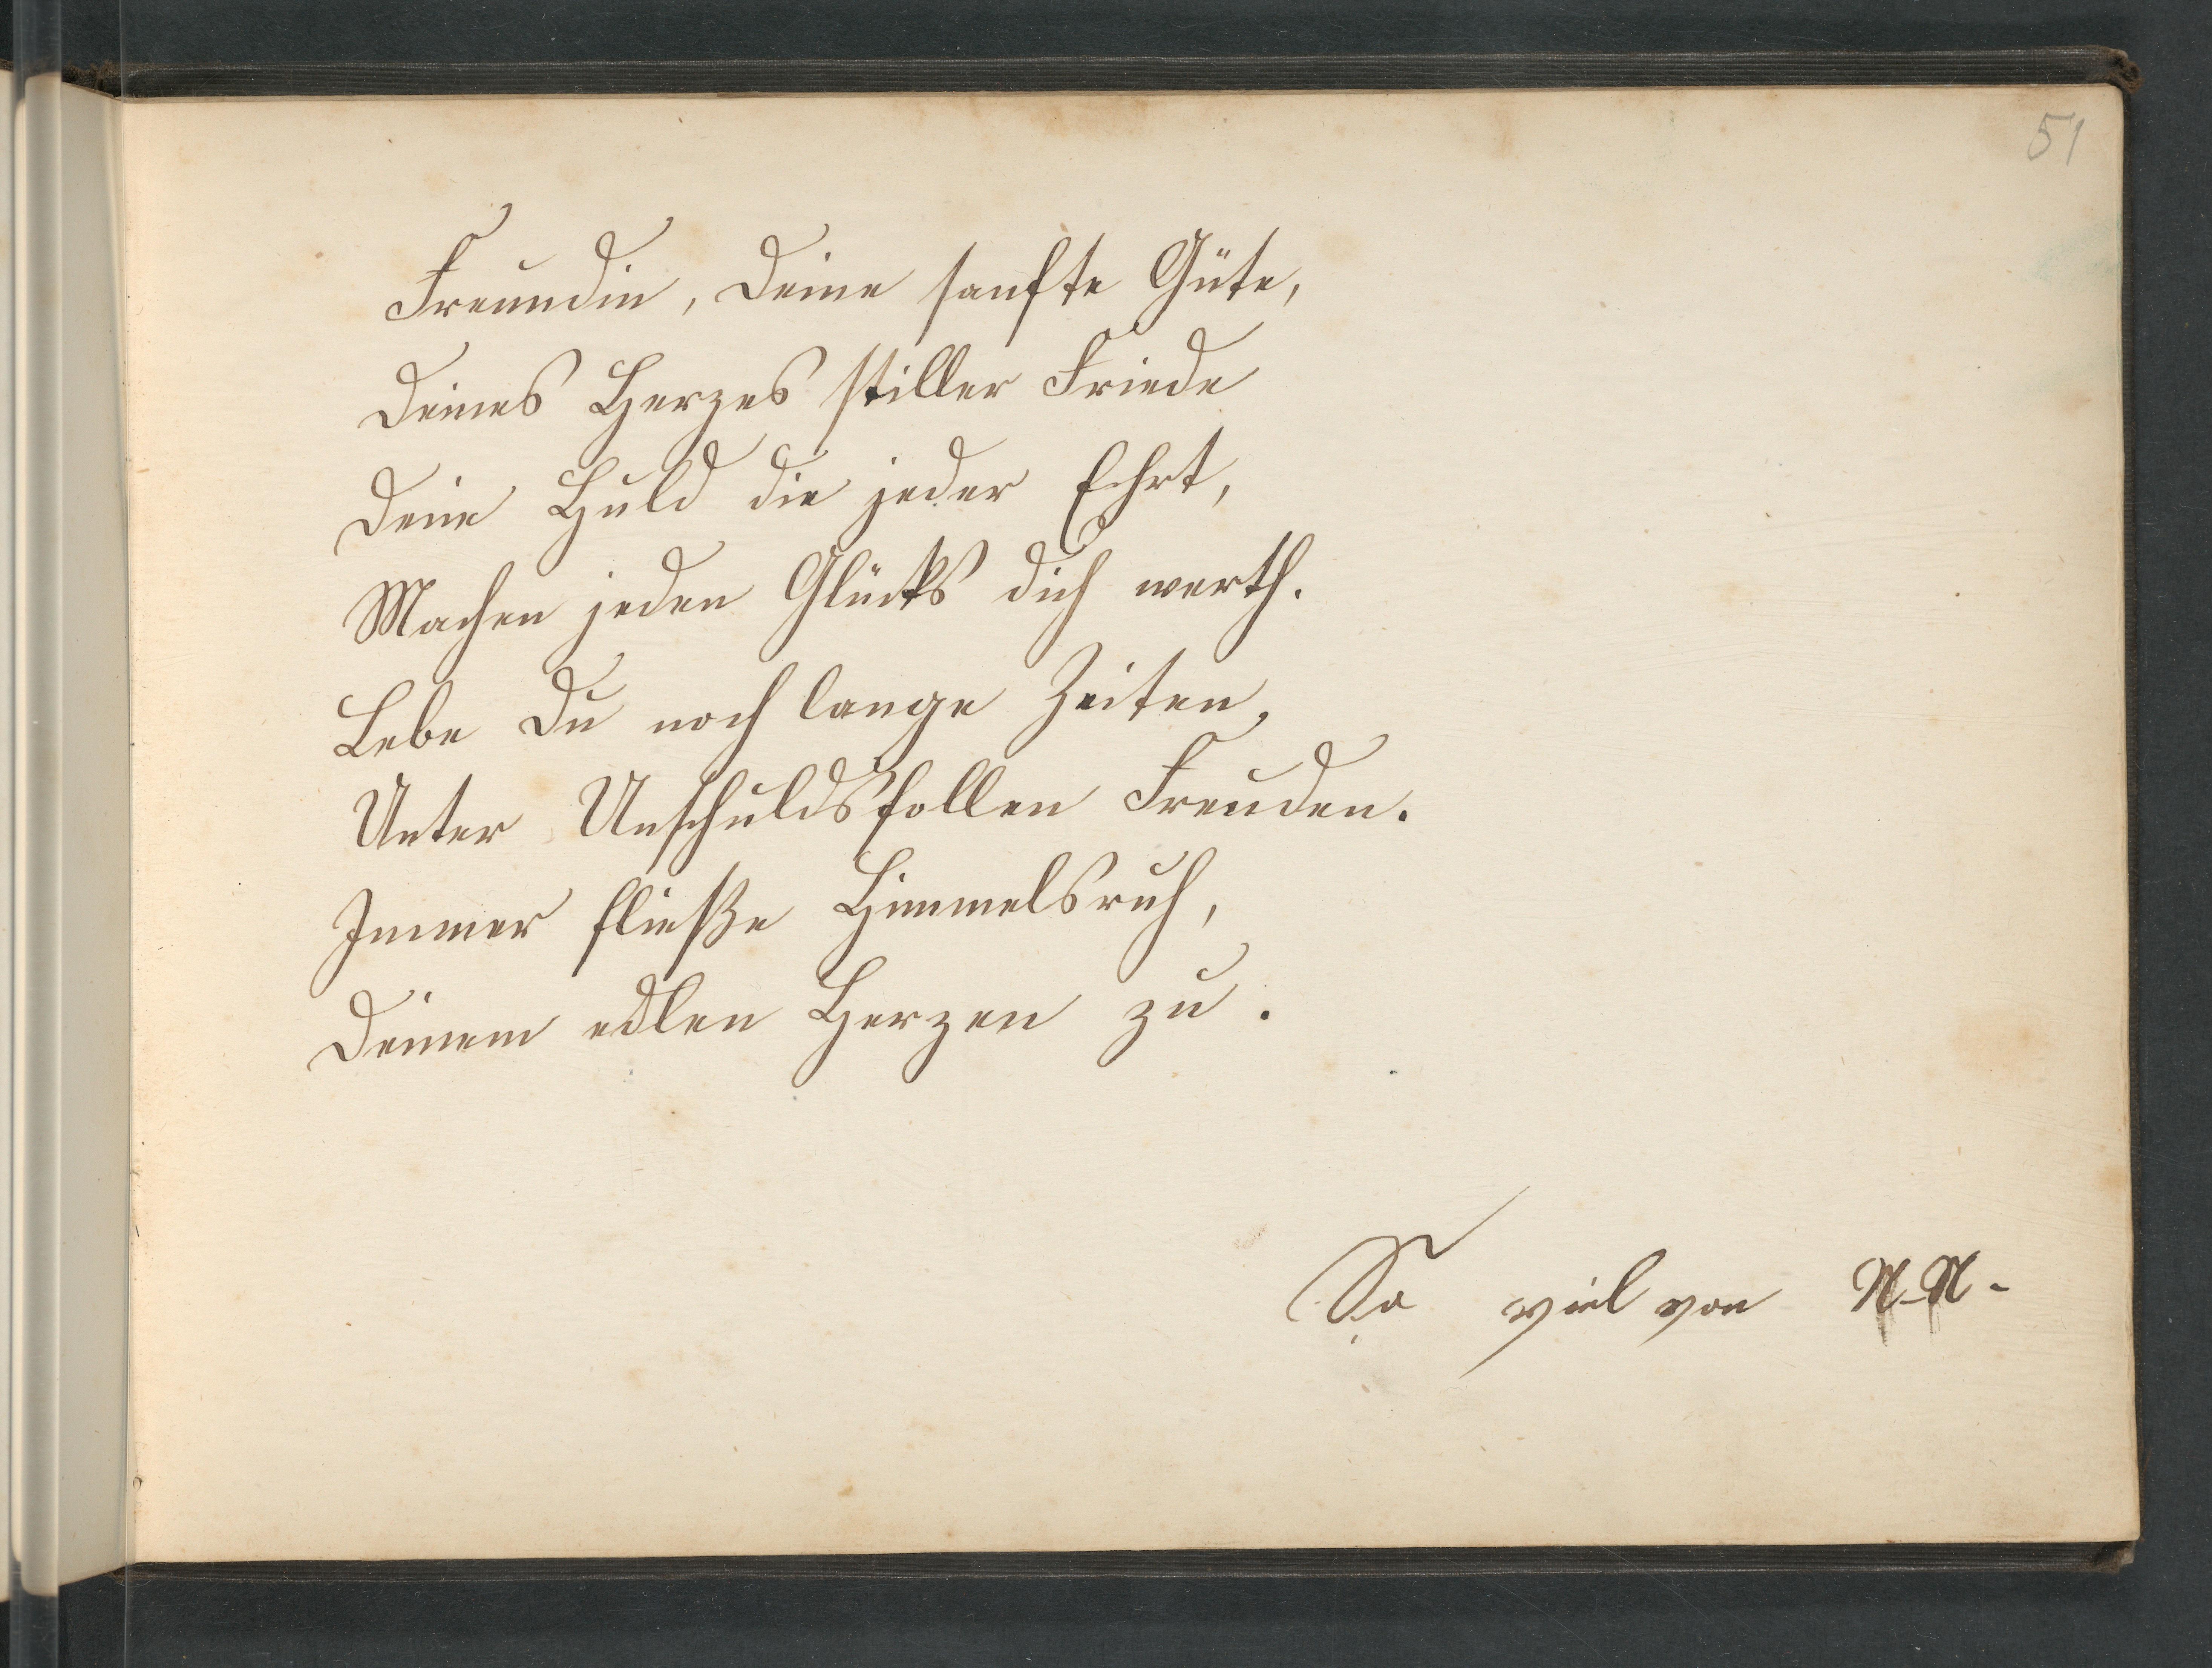 51
Freundin, Deine sanfte Güte,
Deines Herzes stiller Friede
Deine Huld die jeder Ehrt,
Machen jeden Glücks dich werth.
Lebe Du noch lange Zeiten,
Unter Unschuldsfollen Freuden.
Immer fließe Himmelsruh,
Deinem edlen Herzen zu.
So viel von N-N-